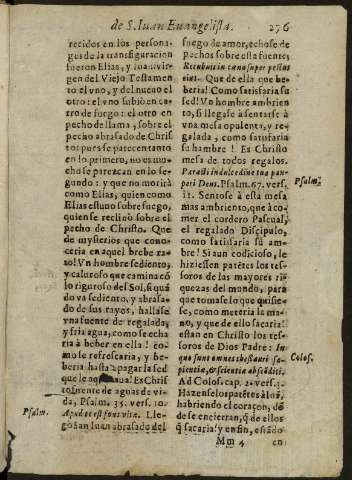 de S. Iuan Euangelista. 276
recidos en los persona-
ges de la transfiguracion
fueron Elias, y Iuan vir-
gen del Viejo Testamen
to el vno, y del nueuo el
otro: el vno subio en car-
ro de fuego: el otro en
pecho de llama, sobre el
pecho abrasado de Chris
to: pues se parecen tanto
en lo primero, no es mu-
cho se parezcan en lo se-
gundo: y que no morirà
como Elias, quien como
Elias estuuo sobre fuego,
quien se reclinò sobre el
pecho de Christo. Que
de mysterios que cono-
ceria en aquel brebe ra-
to! Vn hombre sediento,
y caluroso que caminacõ
lo riguroso del Sol, si quã
do va sediento, y abrasa-
do de sus rayos, hallasse
vna fuente de regalada,
y fria agua, como se echa
ria à beber en ella! como
se refrescaria, y be-
beria hasta apagar la sed
que le aquexaua! Es Chris
to fuente de aguas de vi-
da, Psalm. 35. vers. 10.
Psalm.
Apud te est fons vitæ. Lle-
gò Iuan abrasado del
fuego de amor, echose de
pechos sobre esta fuente,
Recubuit in cœna super pectus
eius. Que de ella que be-
beria! Como satisfaria su
sed! Vn hombre ambrien
to, si llegasse à sentarse à
vna mesa opulenta, y re-
galada, como satisfaria
su hambre! Es Christo
mesa de todos regalos.
Parasti in dulcedine tua pau-
peri Deus. Psalm. 67. vers.
Psalm.
11. Sentose à esta mesa
mas ambriento, que à co-
mer el cordero Pascual,
el regalado Discipulo,
como satisfaria su am-
bre! Si aun codicioso, le
hiziessen patētes los te-
soros de las mayores ri-
quezas del mundo, para
que tomasse lo que quisie-
se, como meteria la ma-
no, y que de ello sacaria!
estan en Christo los te-
soros de Dios Padre: In
quo sunt omnes thesauri sa-
Colos.
pientiæ, & scientiæ absconditi.
Ad Colos. cap. 2. vers. 3.
Hazenselos patētes à Iuã,
habriendo el coraçon, dõ
de se encierran, q̃ de ellos
q̃ sacaria y en fin, estãdo
Mm 4 en